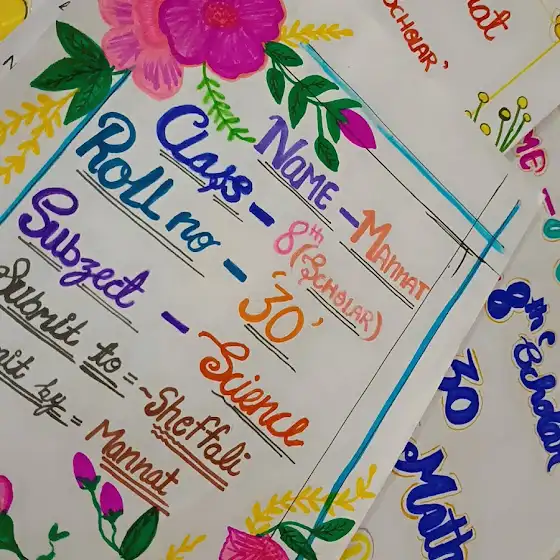 NAME - MANNAT
Class - 8th (SCHOLAR)
Roll no - '30'
Subzect - Science
Submit to = ~Sheffali
mit by = Mannat
SCHOLAR'
nat
ME -
8th
Scholar
30
Math